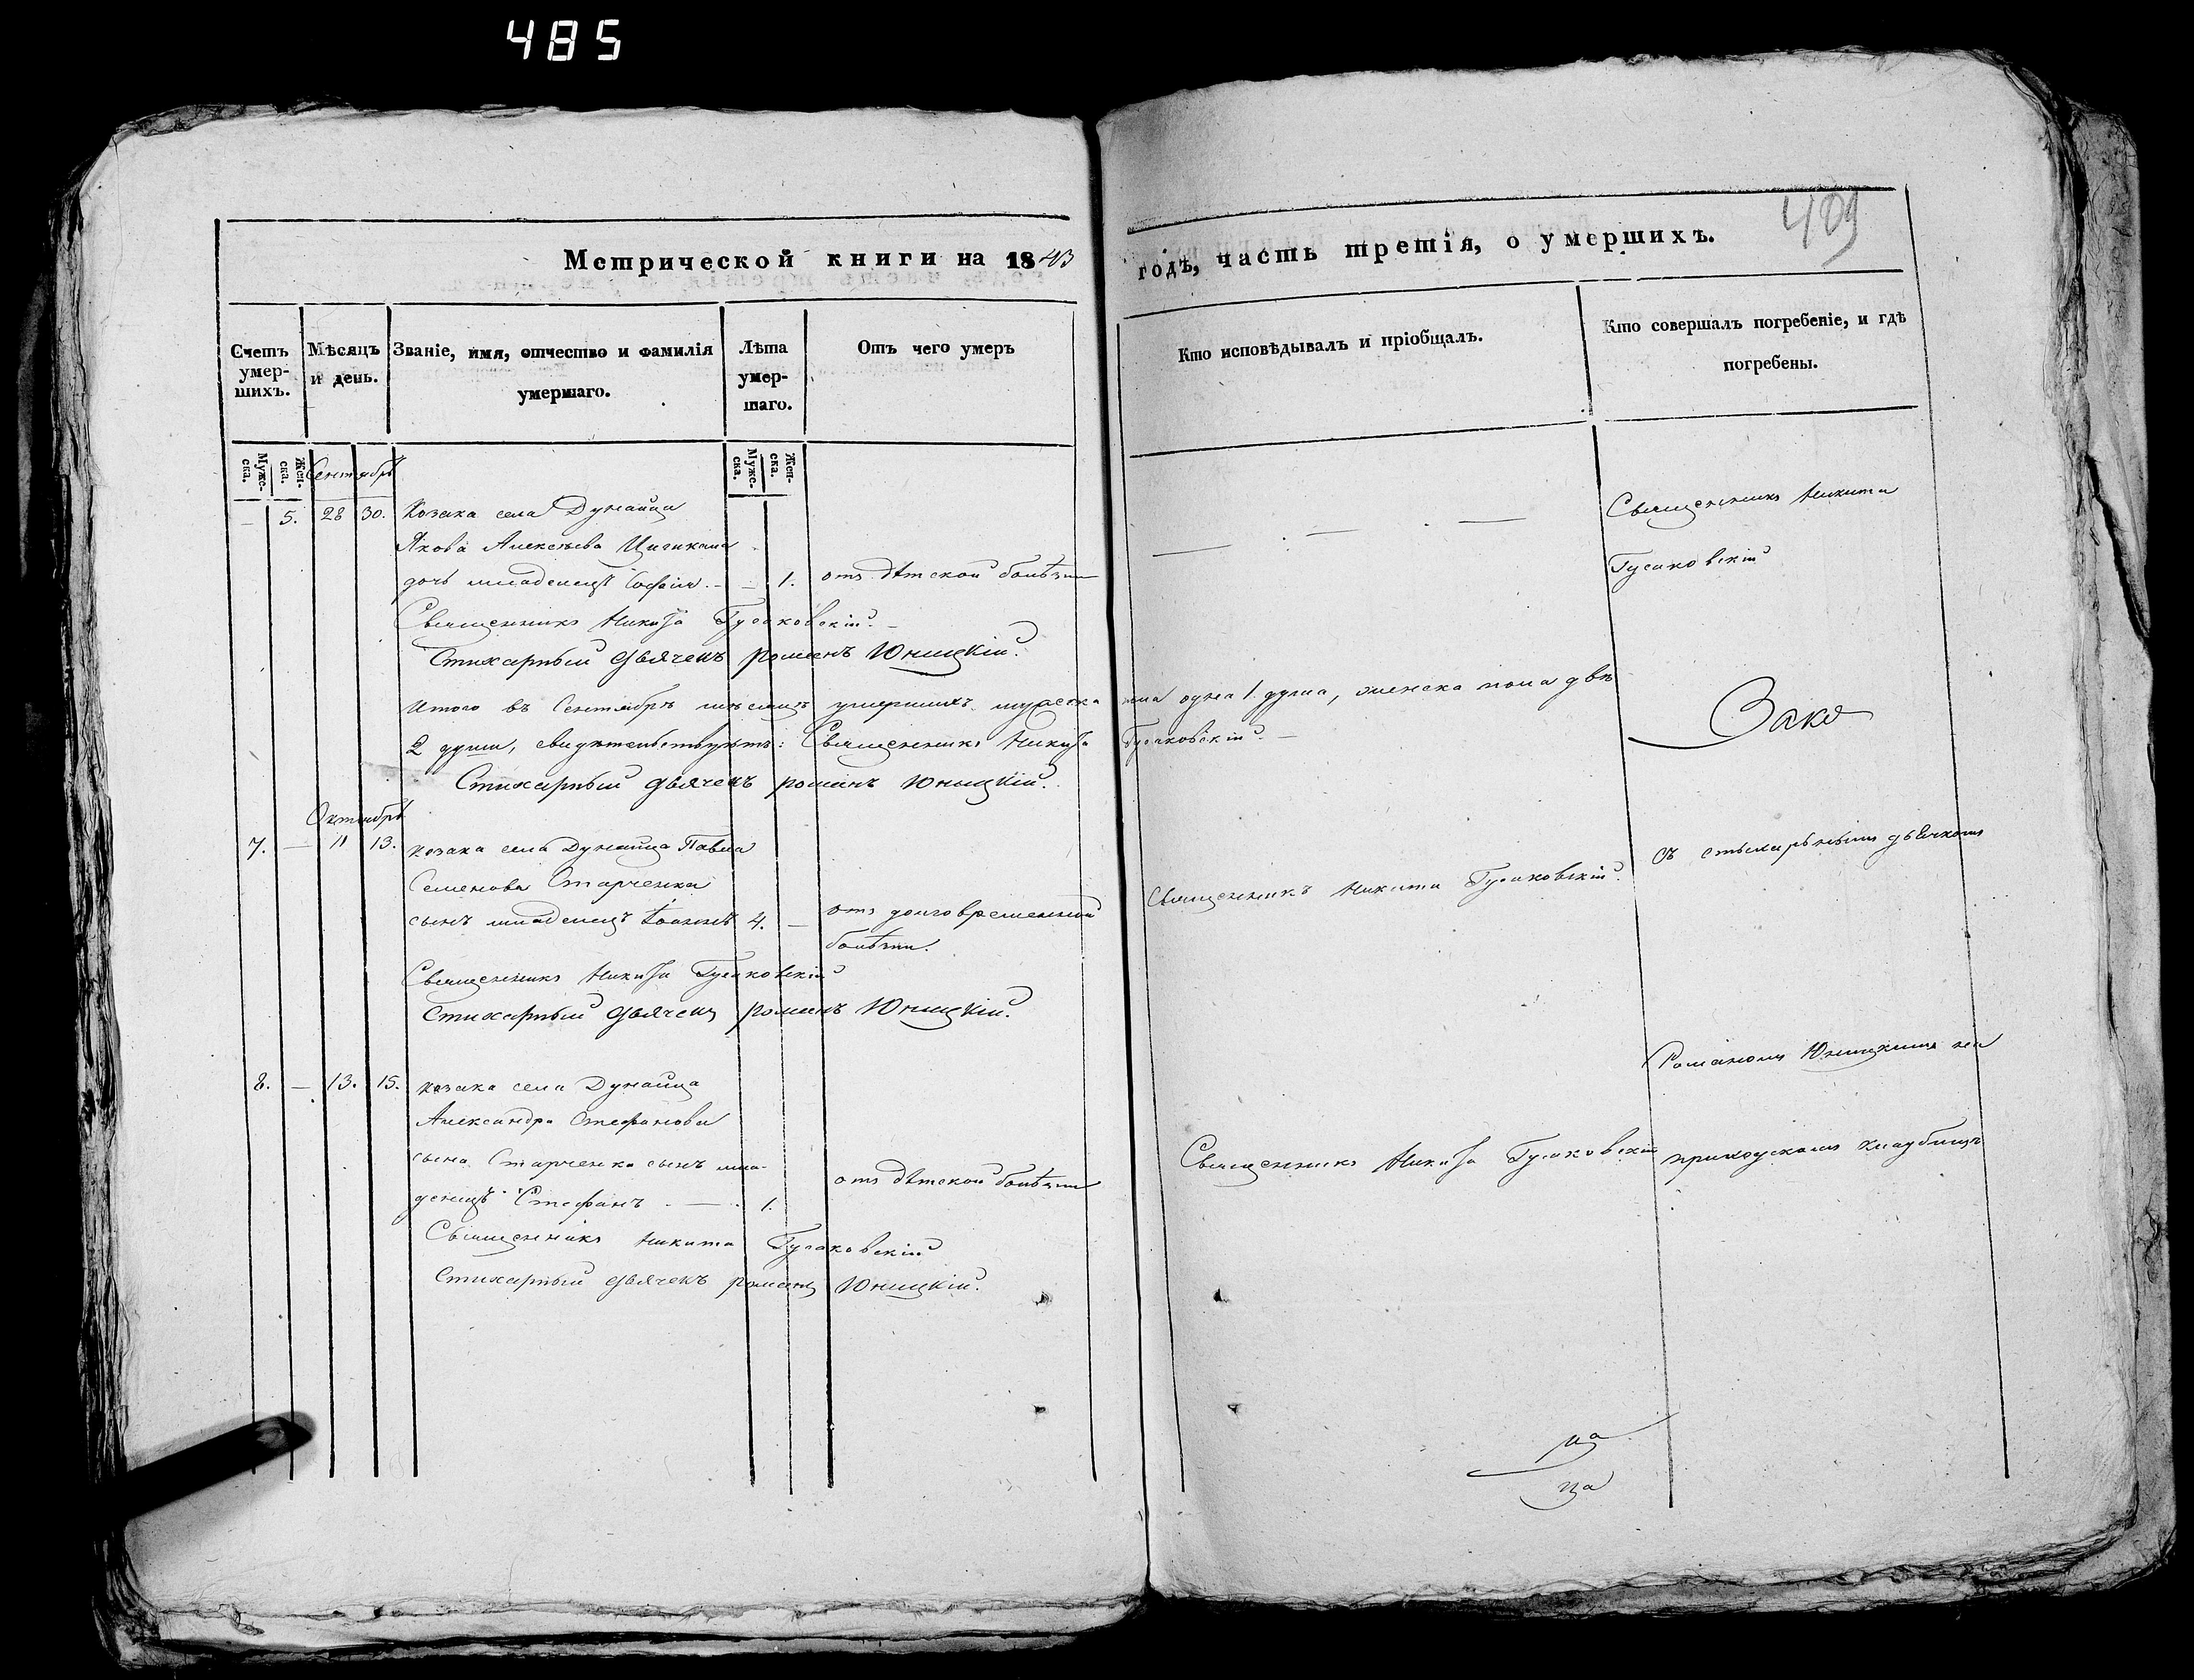 485
Метрической книги на 1843
годъ, часть третія, о умершихъ.
409
Счетъ умер-шихъ.
Мѣсяцъ и день.
Званіе, имя, отчество и фамилія умершаго.
Лѣта умер-шаго.
Отъ чего умеръ
Кто исповѣдывалъ и пріобщалъ.
Кто совершалъ погребеніе, и гдѣ погребены.
Мужес-ка.
Жен-ска.
Сентябрь
Мужес-ка.
Жен-ска.
— 5. 28 30. Козака села Дунайца
Якова Алексѣева
дочь младенецъ Софія. — 1. отъ дѣтской болѣзни
Священникъ Никита
Гусаковскій
Священникъ Никита Гусаковскій.
Стихарный дьячекъ романъ Юницкій.
Итого въ Сентябрѣ мѣсяцѣ умершихъ мужеска пола одна 1 душа, женска пола двѣ
2 души, свидѣтельствуютъ: Священникъ Никита Гусаковскій. —
Стихарный дьячекъ романъ Юницкій.
Зако
Октябрь
7. — 11 13. козака села Дунайца Павла
Семенова Старченка
сынъ младенецъ Іоаннъ 4. — отъ долговременной
болѣзни.
Священникъ Никита Гусаковскій.
Съ стихарнымъ дьячкомъ
Священникъ Никита Гусаковскій
Стихарный дьячекъ романъ Юницкій.
8. — 13. 15. козака села Дунайца
Александра Стефанова
сына Старченка сынъ мла-
денецъ Стефанъ — 1. отъ дѣтской болѣзни
Священникъ Никита Гусаковскій
Романомъ Юницкимъ на
приходскомъ кладбищѣ
Священникъ Никита Гусаковскій
Стихарный дьячекъ романъ Юницкій.